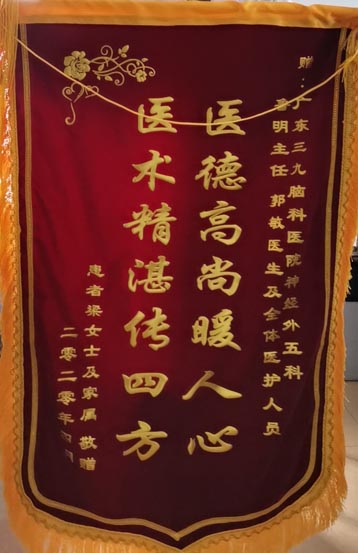 赠：广东三九脑科医院神经外五科
明主任 郭敏医生及全体医护人员
医德高尚暖人心
医术精湛传四方
患者梁女士及家属 敬赠
二零二零年